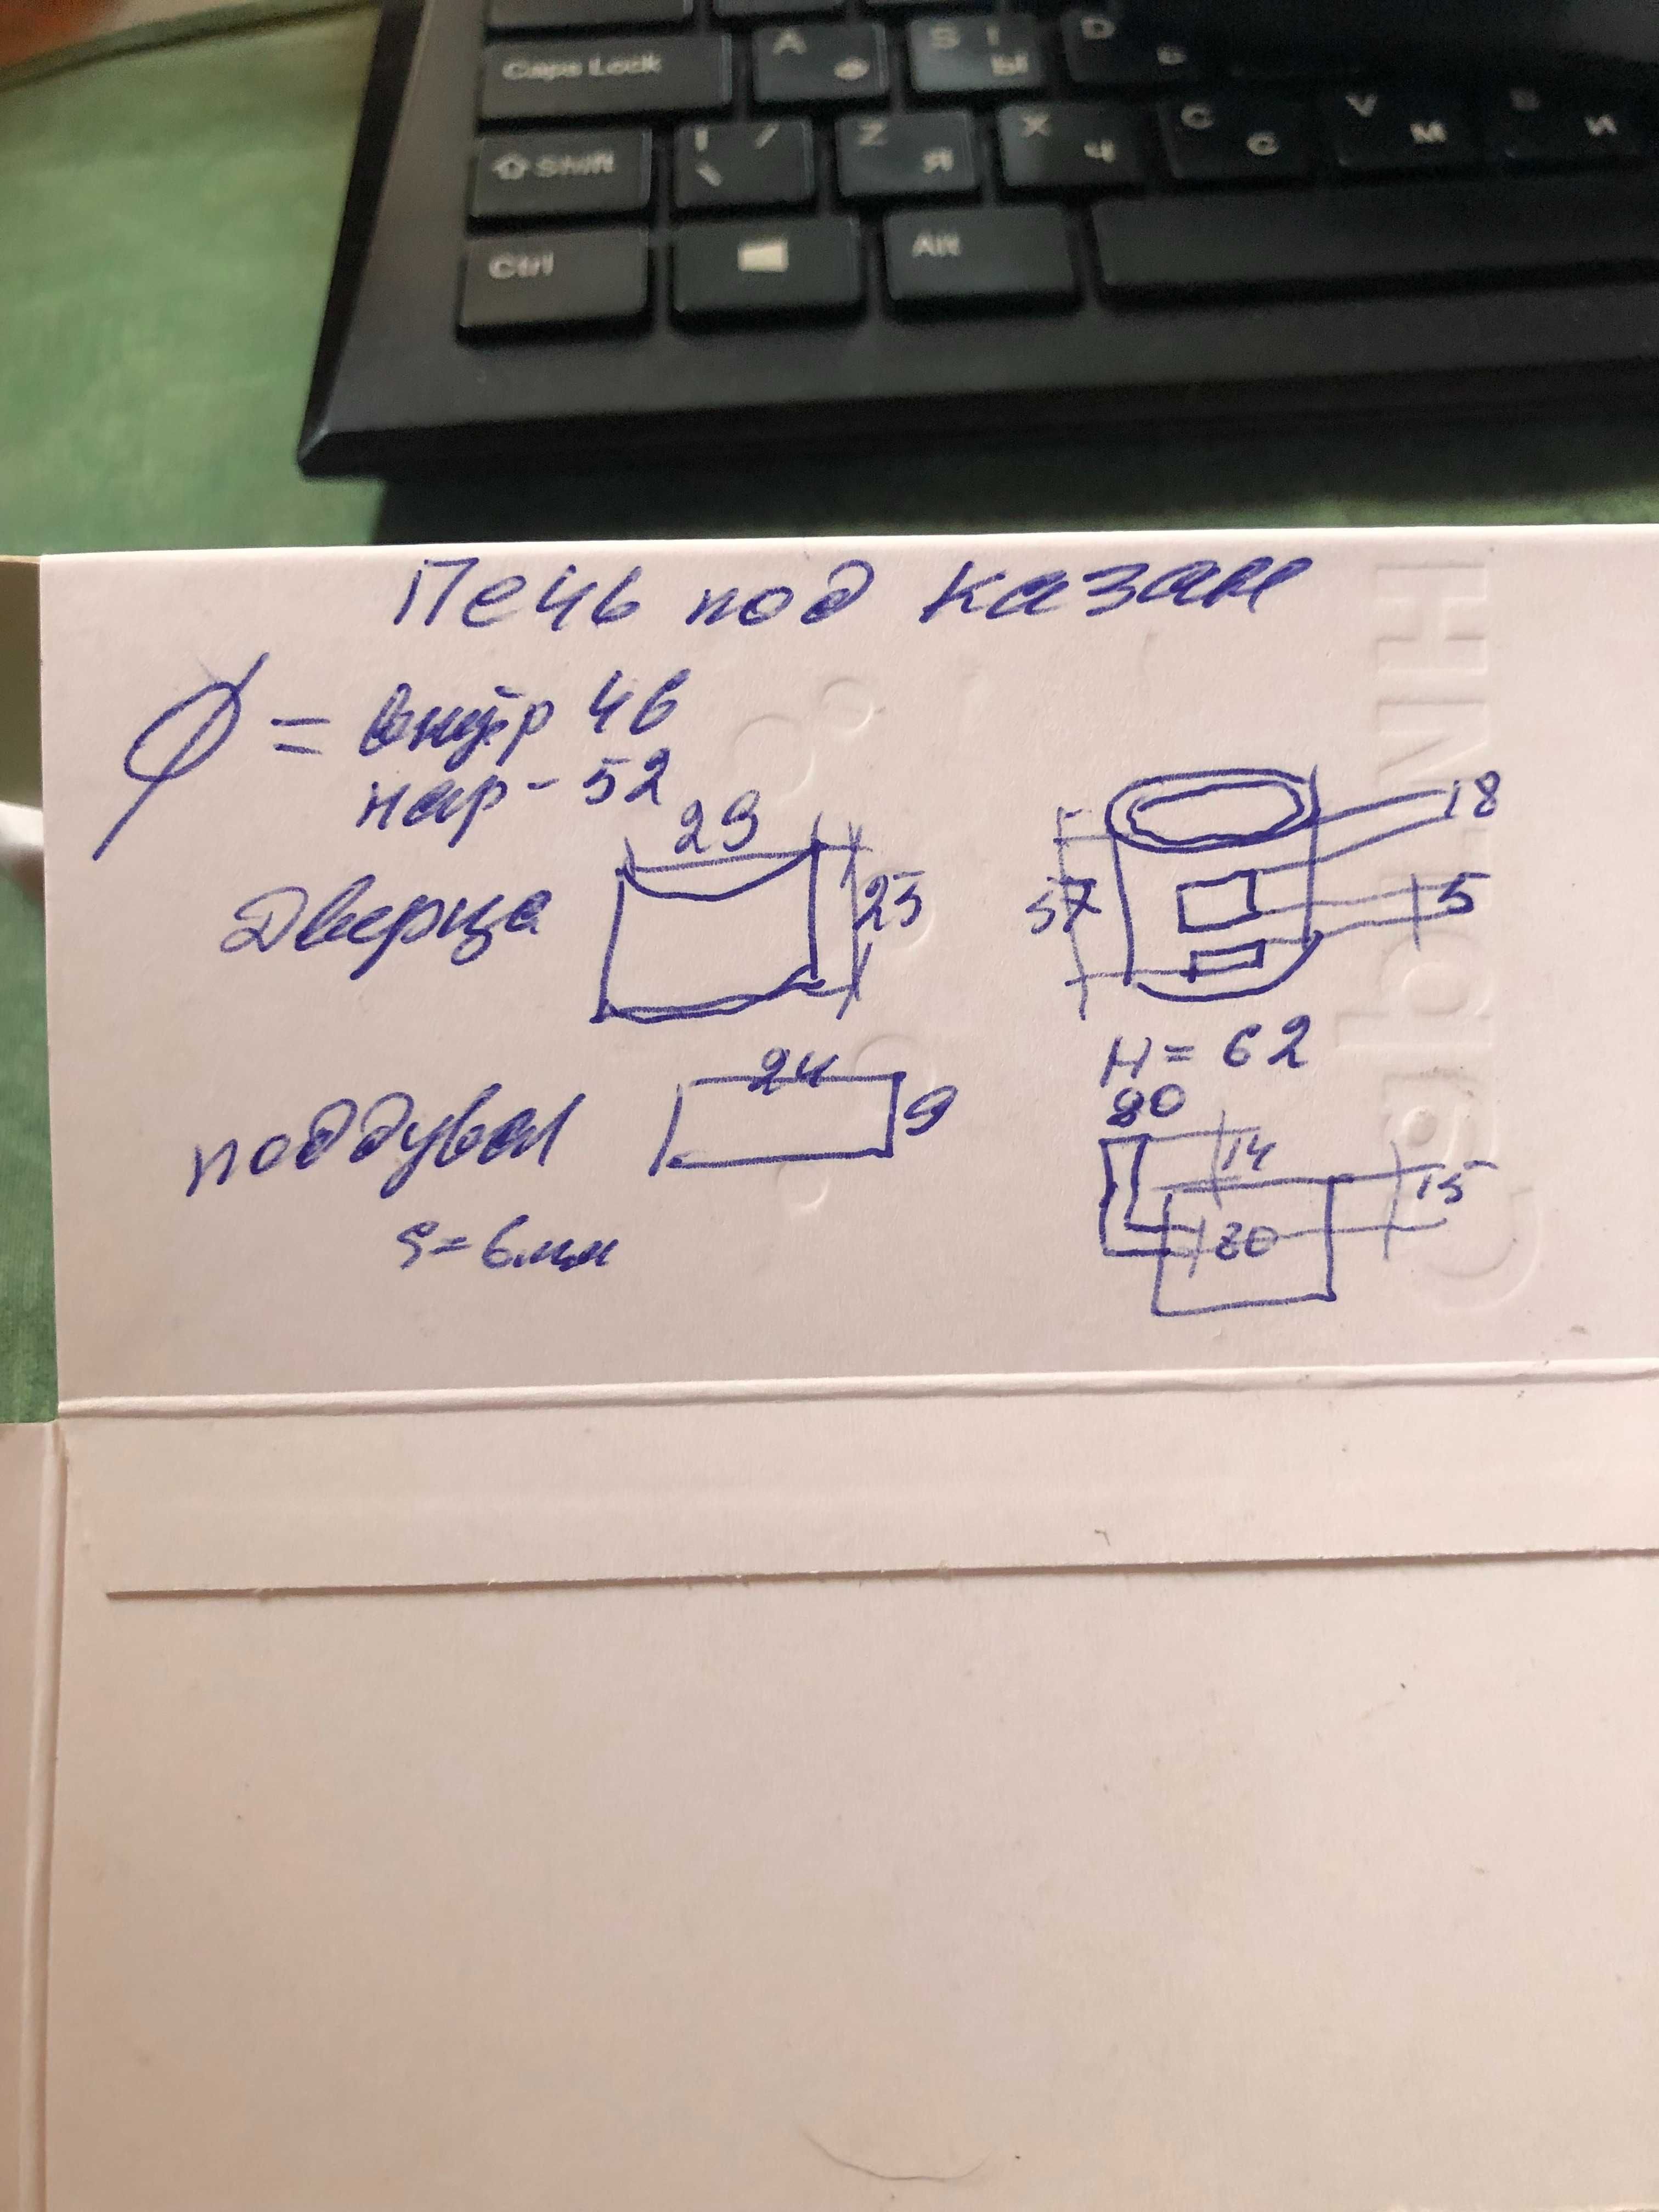 Caps Lock A Ф S Ы D
Shift Z Я X Ч C С V М B И
Ctrl Alt
Печь под казан
Ø = внутр 46
нар - 52
Дверца 29 25
57 18 5
H = 62
поддувал 24 9
S = 6мм
80 14 15